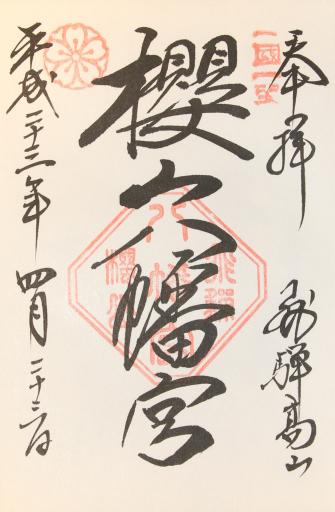 奉拝
飛騨高山
一国一社
櫻山八幡宮
飛騨
八幡宮
櫻山
平成二十三年四月二十二日